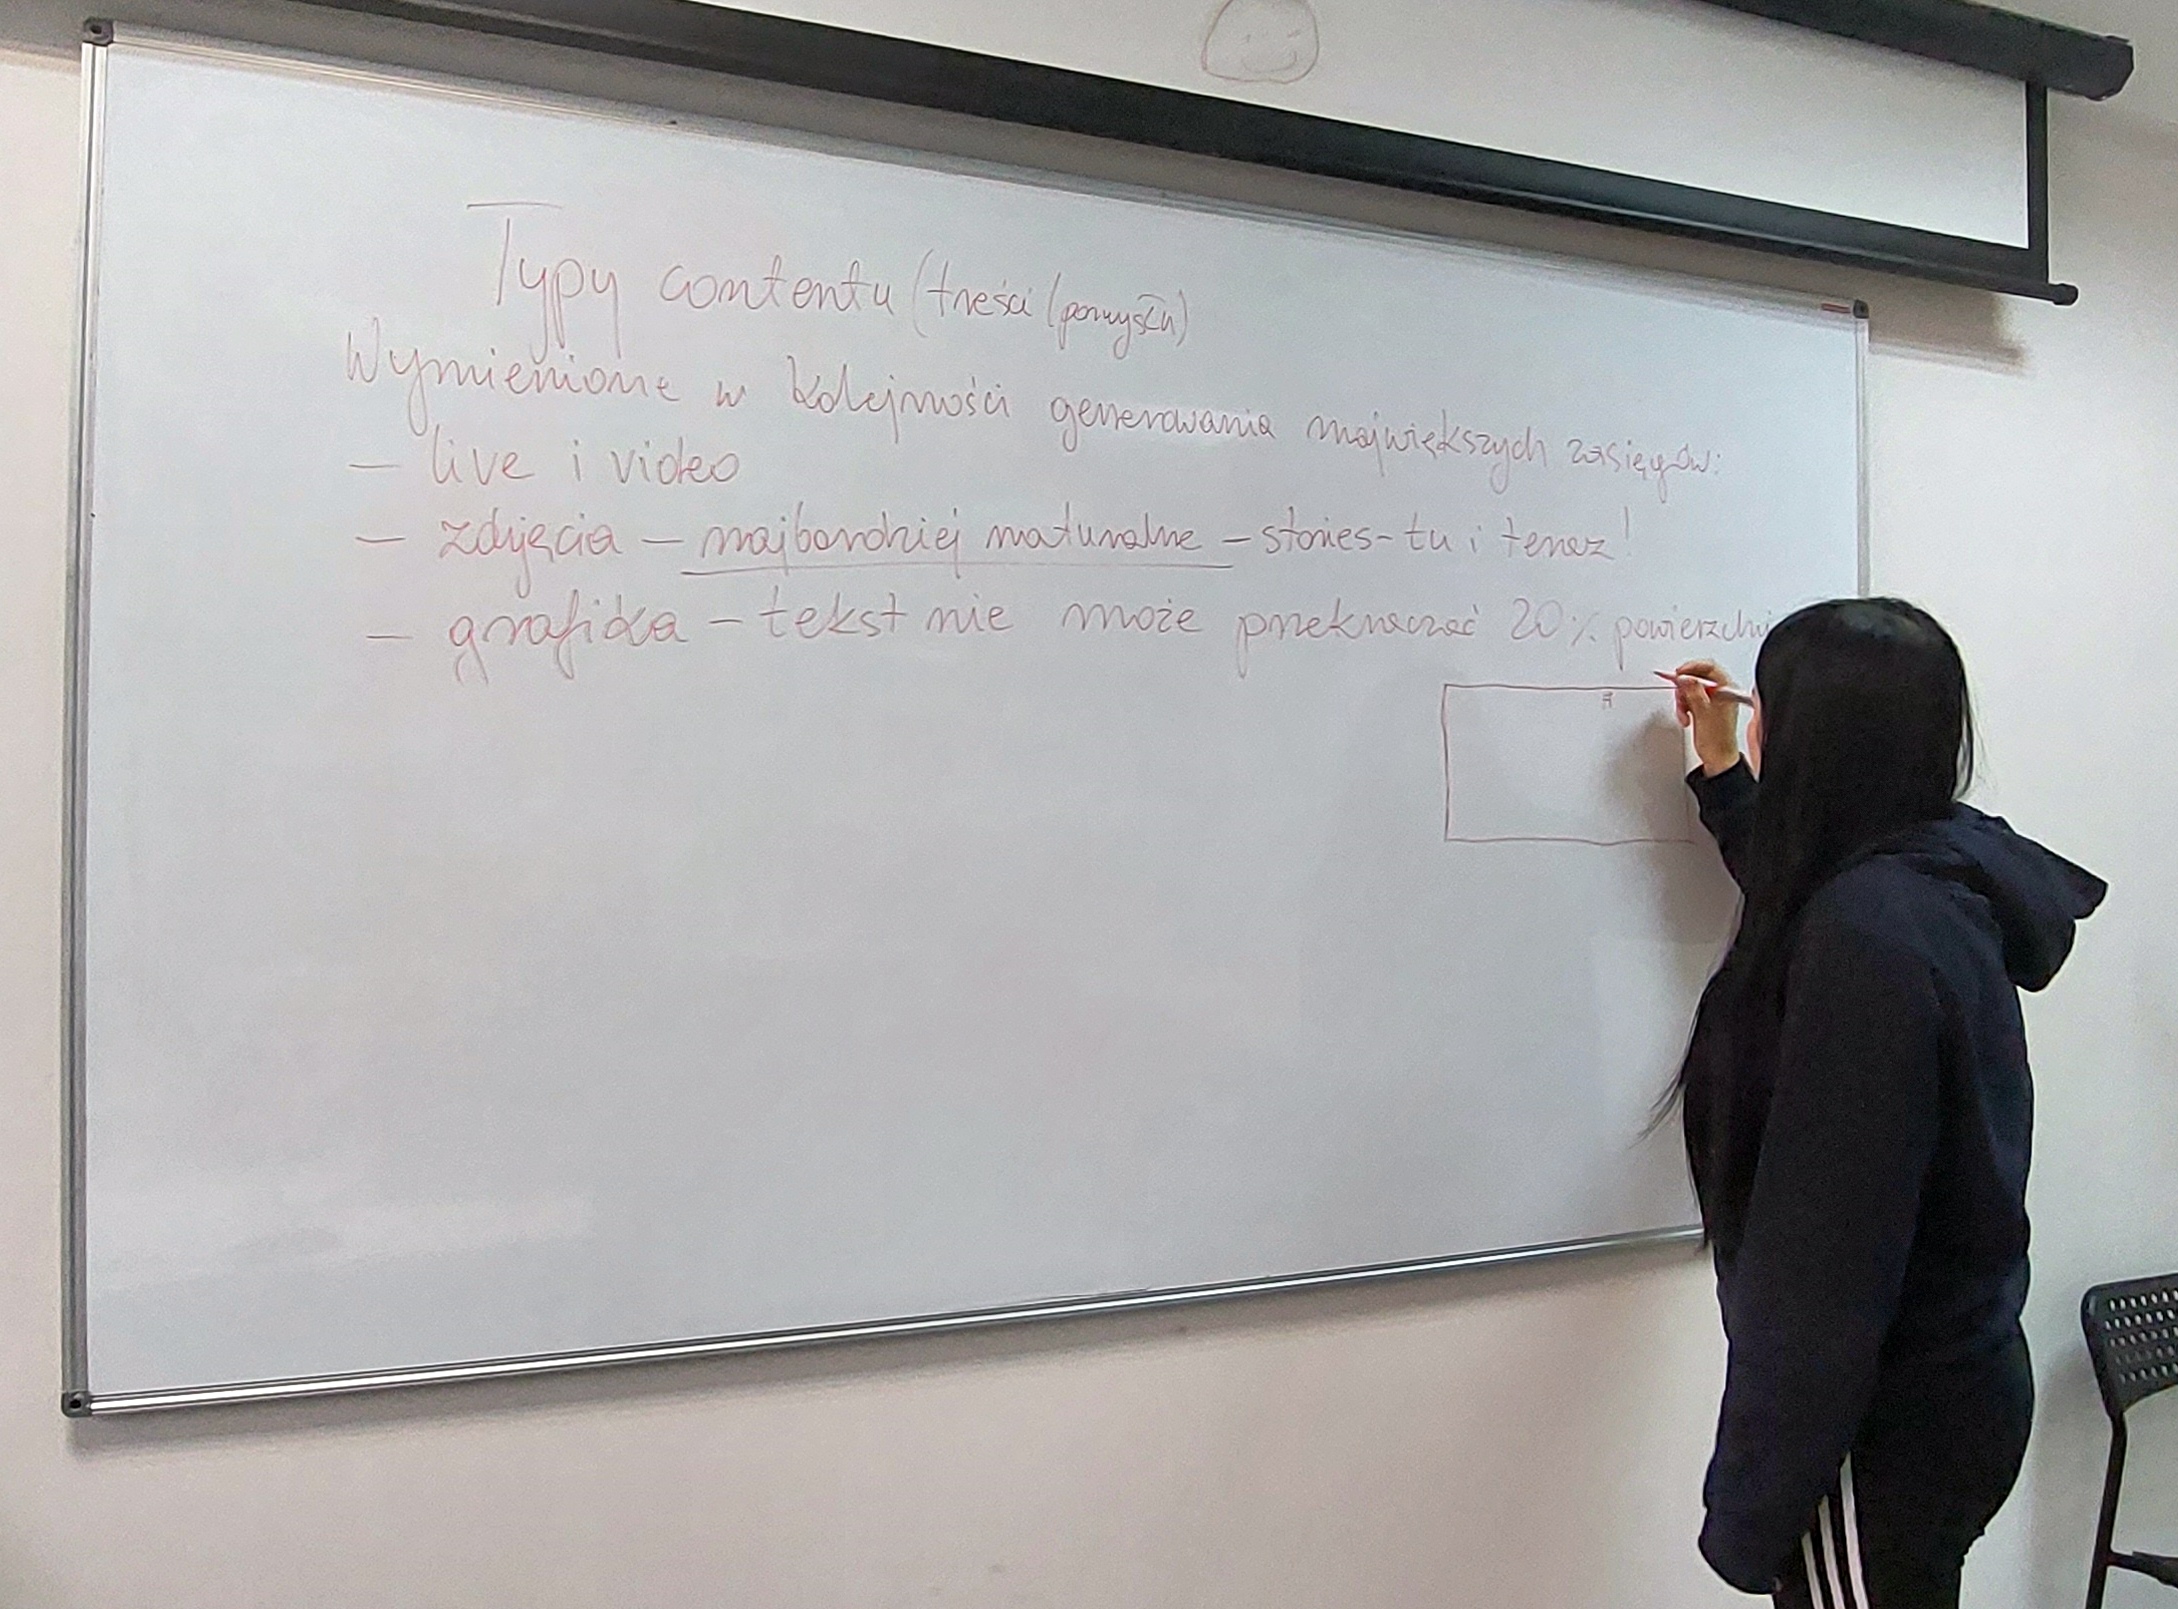 Typy contentu (treści (pomysłu)
Wymienione w kolejności generowania największych zasięgów:
– live i video
– zdjęcia – najbardziej naturalne – stories – tu i teraz!
– grafika – tekst nie może przekraczać 20% powierzchni